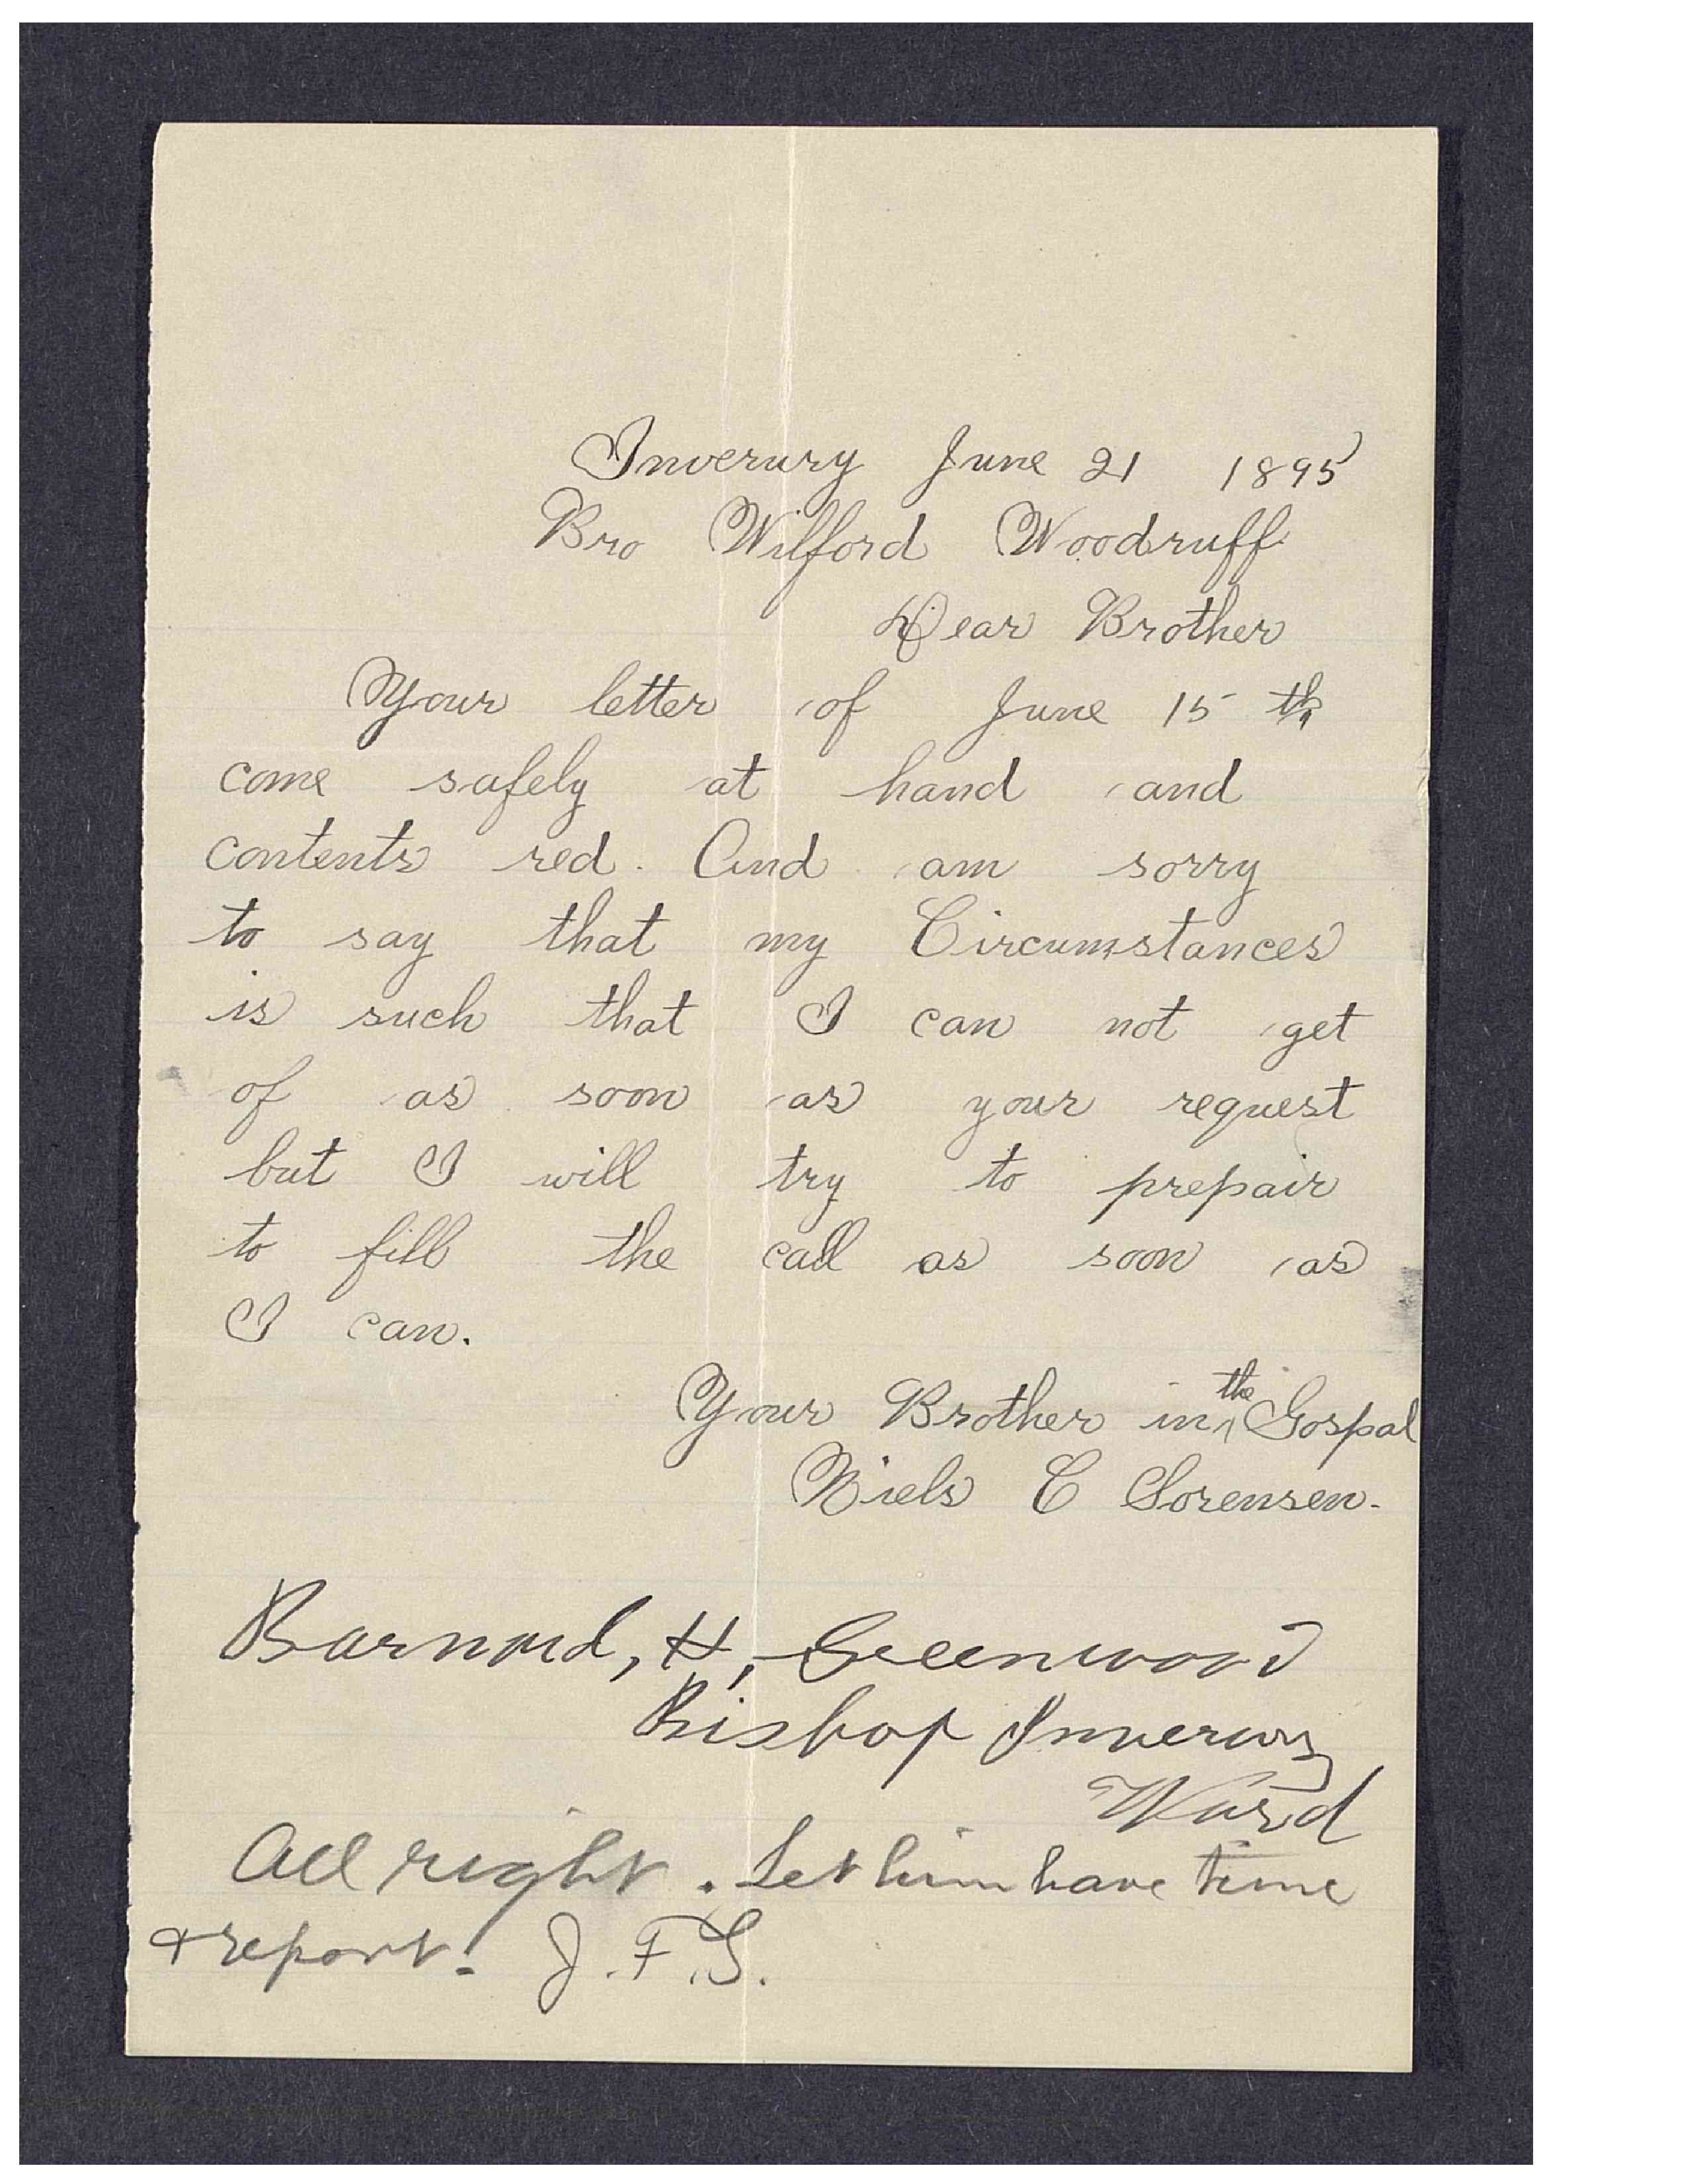 Inverury June 21 1895
Bro Wilford Woodruff
Dear Brother
Your letter of June 15 th
come safely at hand and
contents red. And am sorry
to say that my Circumstances
is such that I can not get
of as soon as your request
but I will try to prepair
to fill the call as soon as
I can.
Your Brother in the Gospal
Niels C Sorensen.
Barnard, H, Greenwood
Bishop Inverury
Ward
All right. Let him have time
& report. J. F. S.